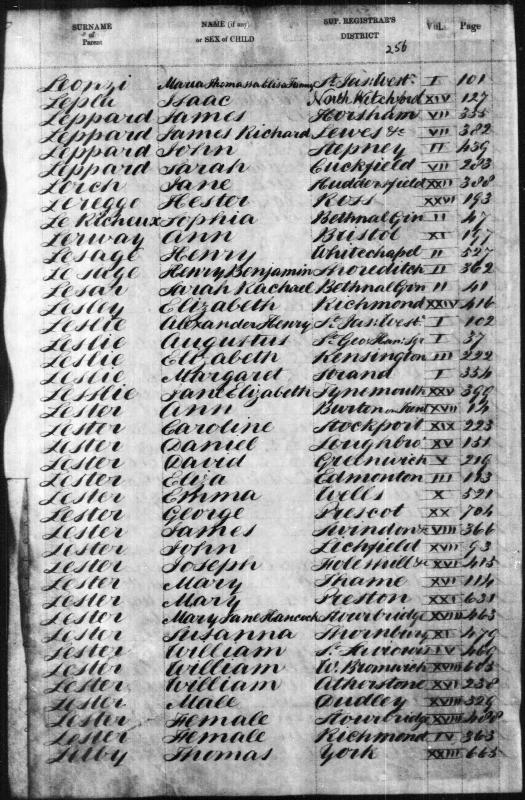 SURNAME of Parent NAME (if any) or SEX of CHILD SUP. REGISTRAR'S DISTRICT Vol. Page
256
Leonzi Maria Thomassa Eliza Fanny St Jas: West: I 101
Isaac North Witchford XIV 127
Leppard James Horsham VII 355
Leppard James Richard Lewes &c VII 382
Leppard John Stepney II 439
Leppard Sarah Cuckfield VII 283
Lerch Jane Huddersfield XXII 388
Leregge Hester Ross XXVI 193
Le Richeux Sophia Bethnal Grn II 47
Lerway Ann Bristol XI 197
Lesage Henry Whitechapel II 527
Lesage Henry Benjamin Shoreditch II 362
Lesar Sarah Rachael Bethnal Grn II 41
Lesley Elizabeth Richmond XXIV 416
Leslie Alexander Henry St Jas: West: I 102
Leslie Augustus St Geo: Han: Sqr I 37
Leslie Elizabeth Kensington III 222
Leslie Margaret Strand I 354
Lesslie Jane Elizabeth Tynemouth XXV 399
Lester Ann Burton on Trent XVII 14
Lester Caroline Stockport XIX 223
Lester Daniel Loughbro' XV 151
Lester David Greenwich V 219
Lester Eliza Edmonton III 113
Lester Emma Wells X 521
Lester George Prescot XX 704
Lester James Swindon &c VIII 366
Lester John Lichfield XVII 93
Lester Joseph Foleshill &c XVI 415
Lester Mary Thame XVI 114
Lester Mary Preston XXI 631
Lester Mary Jane Hancock Stourbridge XVIII 463
Lester Susanna Thornbury XI 479
Lester William St Saviours IV 460
Lester William W. Bromwich XVIII 603
Lester William Atherstone XVI 238
Lester Male Dudley XVIII 329
Lester Female Stourbridge XVIII 488
Lester Female Richmond IV 363
Thomas York XXIII 665